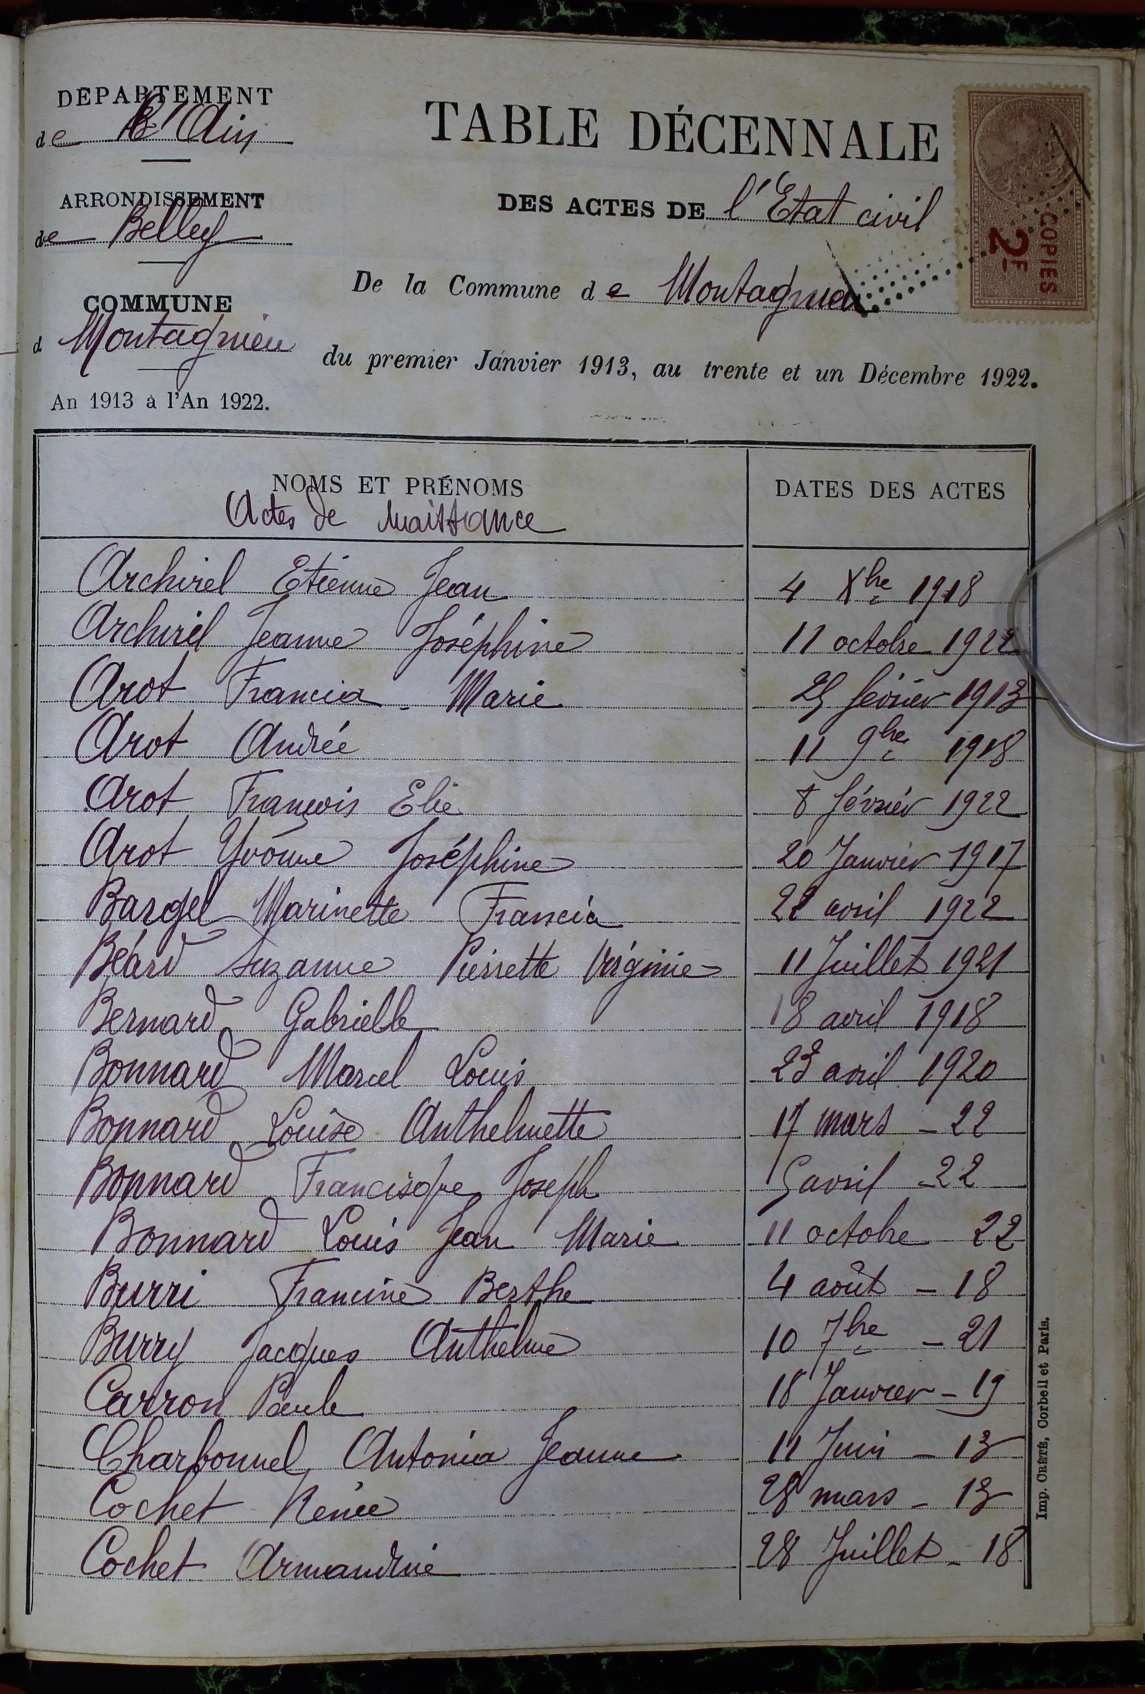 DÉPARTEMENT
de l'Ain
ARRONDISSEMENT
de Belley
COMMUNE
d Montagnieu
An 1913 à l'An 1922.
TABLE DÉCENNALE
DES ACTES DE l'Etat civil
De la Commune de Montagnieu
du premier Janvier 1913, au trente et un Décembre 1922.
COPIES
2F
NOMS ET PRÉNOMS
DATES DES ACTES
Actes de Naissance
Archirel Etienne Jean 4 Xbre 1918
Archirel Jeanne Joséphine 11 octobre 1922
Arot Francia - Marie 25 février 1913
Arot Andrée 11 9bre 1918
Arot François Elie 8 février 1922
Arot Yvonne Joséphine 20 Janvier 1917
Bargel Marinette Francia 22 avril 1922
Béard Suzanne Pierrette Virginie 11 Juillet 1921
Bernard Gabrielle 18 avril 1918
Bonnard Marcel Louis 23 avril 1920
Bonnard Louise Anthelmette 17 mars - 22
Bonnard Francisque Joseph 5 avril - 22
Bonnard Louis Jean Marie 11 octobre 22
Burri Francine Berthe 4 août - 18
Burry Jacques Anthelme 10 7bre - 21
Carron Paule 18 Janvier - 19
Charbonnel Antonia Jeanne 11 Juin - 13
Cochet Renée 28 mars - 13
Cochet Armandine 28 Juillet - 18
Imp. CRÉTÉ, Corbeil et Paris.